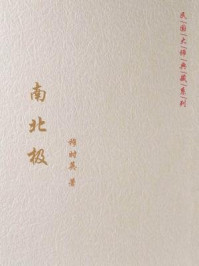 民国大师典藏系列
南北极
穆时英 著